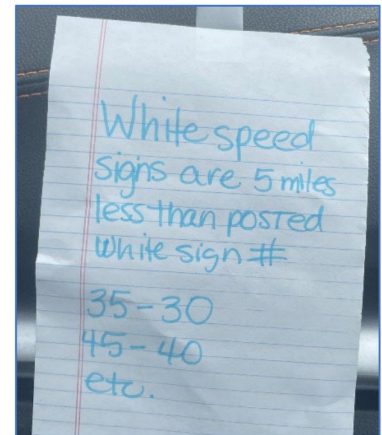 White speed
signs are 5 miles
less than posted
White sign #
35-30
45-40
etc.